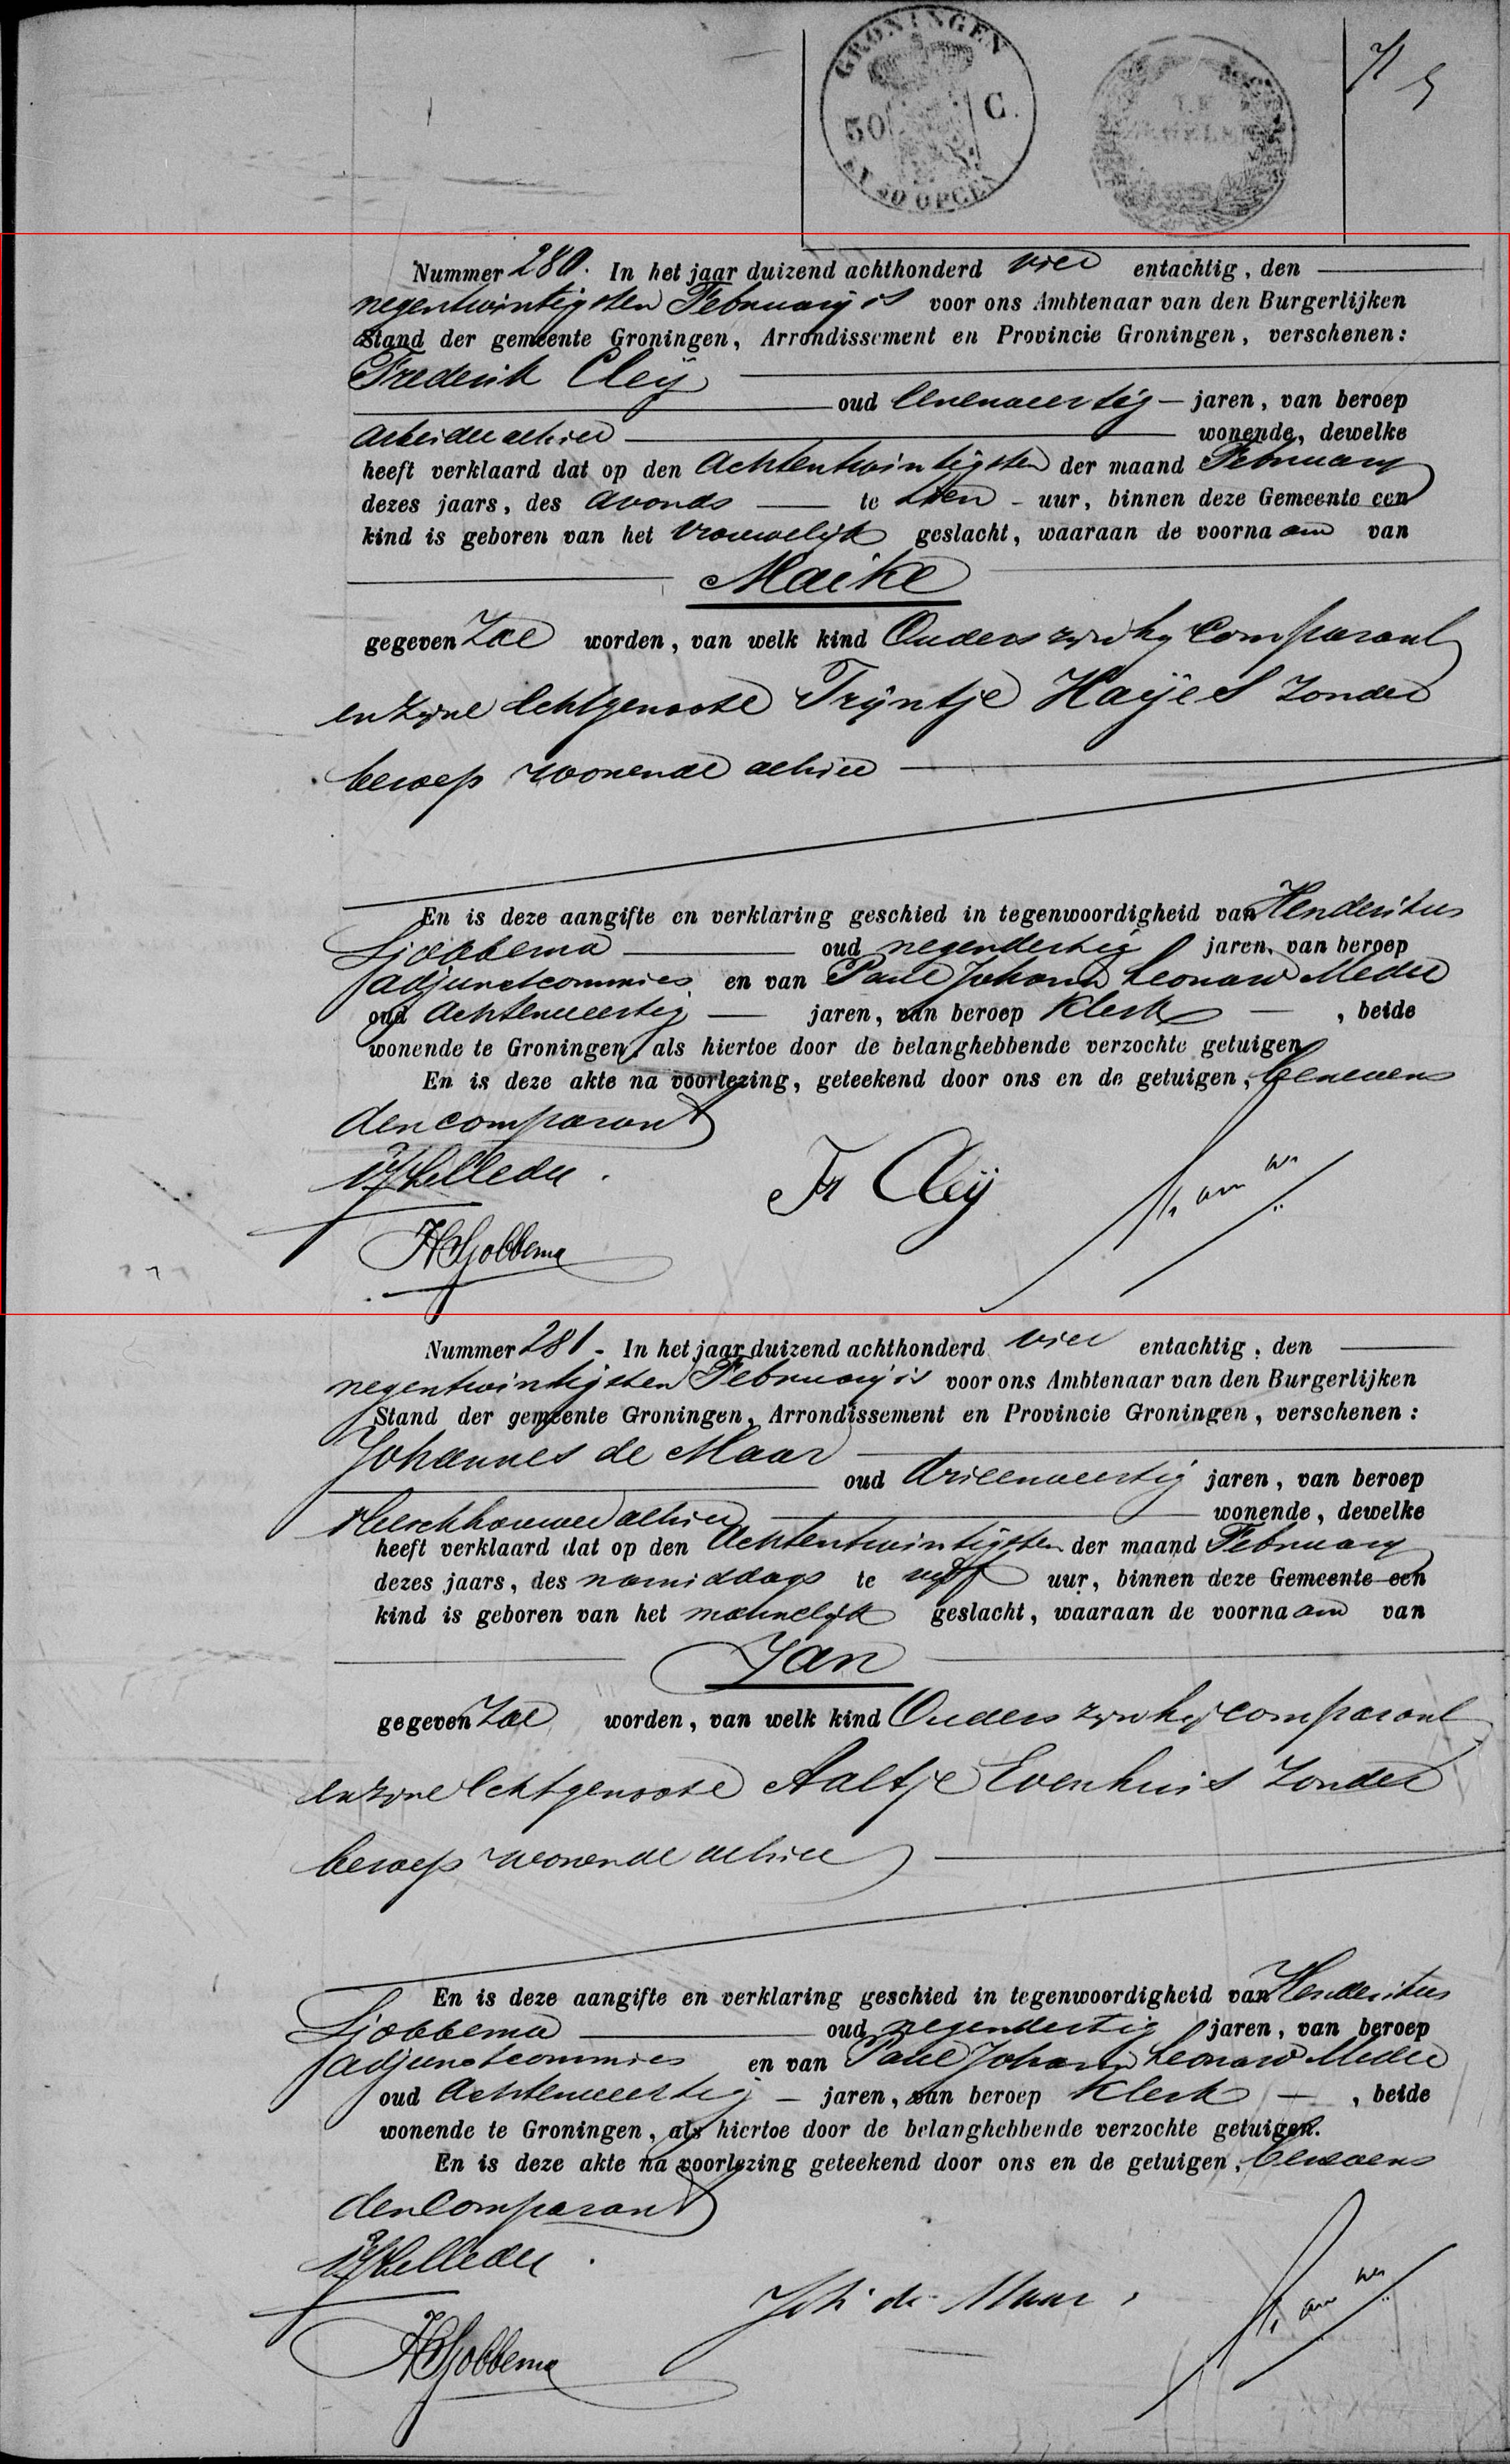 GRONINGEN
50 C.
EN 30 OPCEN
Nummer 280. In het jaar duizend achthonderd vier entachtig, den
negentwintigsten Februarij is voor ons Ambtenaar van den Burgerlijken
Stand der gemeente Groningen, Arrondissement en Provincie Groningen, verschenen:
Frederik Cleij
oud eenenveertig jaren, van beroep
arbeider alhier wonende, dewelke
heeft verklaard dat op den achtentwintigsten der maand February
dezes jaars, des avonds te tien uur, binnen deze Gemeente een
kind is geboren van het vrouwelijk geslacht, waaraan de voornaam van
Maike
gegeven zal worden, van welk kind Ouders zijn hij Comparant
en zijne Echtgenoote Trijntje Haijes zonder
beroep wonende alhier
En is deze aangifte en verklaring geschied in tegenwoordigheid van Hendericus
Sjobbema oud negendertig jaren, van beroep
adjunctcommies en van Paul Johann Leonard Meder
oud achtenveertig jaren, van beroep Klerk, beide
wonende te Groningen, als hiertoe door de belanghebbende verzochte getuigen
En is deze akte na voorlezing, geteekend door ons en de getuigen, benevens
den comparant
Fr Cleij
HSjobbema
Nummer 281. In het jaar duizend achthonderd vier entachtig, den
negentwintigsten Februarij is voor ons Ambtenaar van den Burgerlijken
Stand der gemeente Groningen, Arrondissement en Provincie Groningen, verschenen:
Johannes de Maar
oud drieenveertig jaren, van beroep
vleeschhouwer alhier wonende, dewelke
heeft verklaard dat op den achtentwintigsten der maand February
dezes jaars, des namiddags te vijf uur, binnen deze Gemeente een
kind is geboren van het mannelijk geslacht, waaraan de voornaam van
Jan
gegeven zal worden, van welk kind Ouders zijn hij comparant
en zijne Echtgenoote Aaltje Evenhuis zonder
beroep wonende alhier
En is deze aangifte en verklaring geschied in tegenwoordigheid van Hendericus
Sjobbema oud negendertig jaren, van beroep
adjunctcommies en van Paul Johann Leonard Meder
oud achtenveertig jaren, van beroep Klerk, beide
wonende te Groningen, als hiertoe door de belanghebbende verzochte getuigen.
En is deze akte na voorlezing geteekend door ons en de getuigen, benevens
den Comparant
Joh. de Maar
HSjobbema